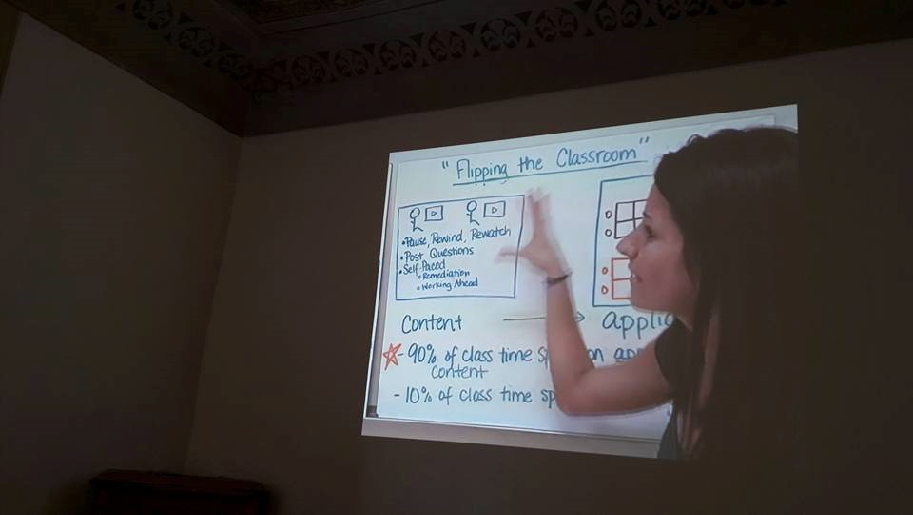 "Flipping the Classroom"
•Pause, Rewind, Rewatch
•Post Questions
•Self-Paced
•Remediation
•Working Ahead
Content
applic
- 90% of class time sp on app
content
- 10% of class time sp